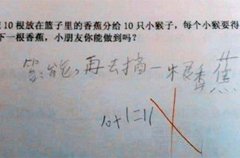 10 根放在篮子里的香蕉分给 10 只小猴子，每个小猴要得
下一根香蕉，小朋友你能做到吗？
答：能，再去摘一根香蕉
10+1=11